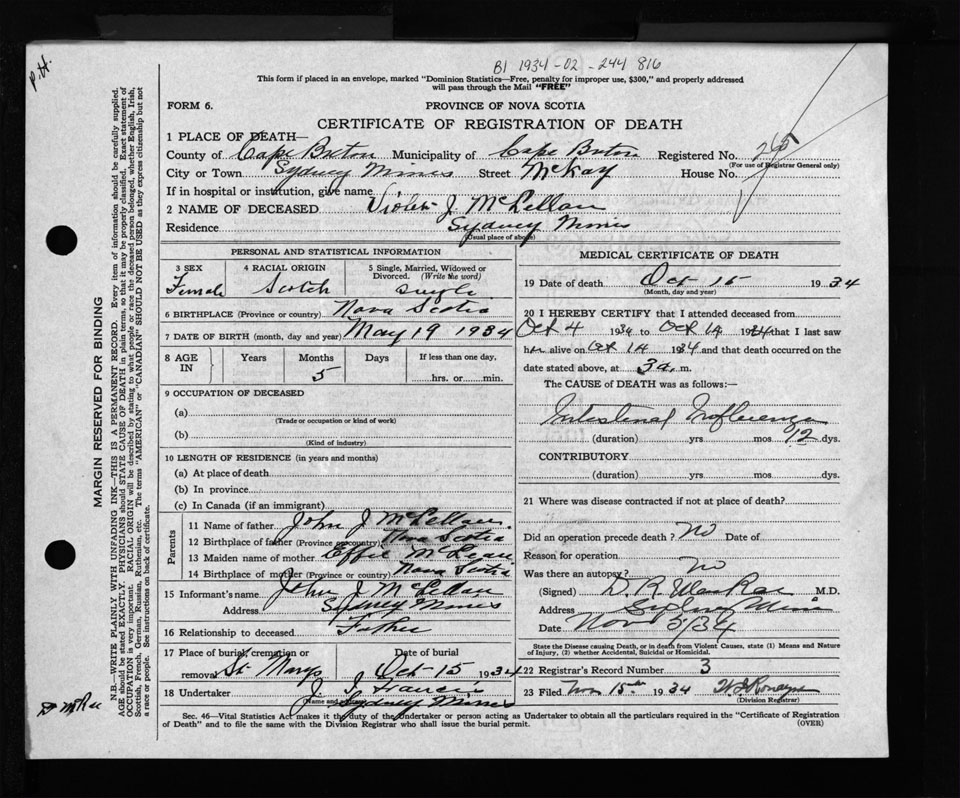 P.H.
B1 1934-02-244 816
This form if placed in an envelope, marked "Dominion Statistics—Free, penalty for improper use, $300," and properly addressed
will pass through the Mail "FREE"
FORM 6. PROVINCE OF NOVA SCOTIA
CERTIFICATE OF REGISTRATION OF DEATH
1 PLACE OF DEATH—
County of Cape Breton Municipality of Cape Breton Registered No.
(For use of Registrar General only)
City or Town Sydney Mines Street McKay House No.
If in hospital or institution, give name
2 NAME OF DECEASED Violet J. McLellan
Residence Sydney Mines
(Usual place of abode)
PERSONAL AND STATISTICAL INFORMATION
3 SEX 4 RACIAL ORIGIN 5 Single, Married, Widowed or
Divorced. (Write the word)
Female Scotch single
6 BIRTHPLACE (Province or country) Nova Scotia
7 DATE OF BIRTH (month, day and year) May 19 1934
8 AGE IN Years Months Days If less than one day,
5 hrs. or min.
9 OCCUPATION OF DECEASED
(a)
(Trade or occupation or kind of work)
(b)
(Kind of industry)
10 LENGTH OF RESIDENCE (in years and months)
(a) At place of death
(b) In province
(c) In Canada (if an immigrant)
Parents
11 Name of father John J McLellan
12 Birthplace of father (Province or country) Nova Scotia
13 Maiden name of mother Effie McLean
14 Birthplace of mother (Province or country) Nova Scotia
15 Informant's name John J McLellan
Address Sydney Mines
16 Relationship to deceased Father
17 Place of burial, cremation or Date of burial
removal St Marys Oct 15 1934
18 Undertaker J. J. Francis
(Name and address) Sydney Mines
MEDICAL CERTIFICATE OF DEATH
19 Date of death Oct 15 1934
(Month, day and year)
20 I HEREBY CERTIFY that I attended deceased from
Oct 4 1934 to Oct 14 1934 that I last saw
her alive on Oct 14 1934 and that death occurred on the
date stated above, at 3 a. m.
The CAUSE of DEATH was as follows:—
Intestinal Influenza
(duration) yrs mos 12 dys.
CONTRIBUTORY
(duration) yrs mos dys.
21 Where was disease contracted if not at place of death?
Did an operation precede death? No Date of
Reason for operation
Was there an autopsy? No
(Signed) M.D.
Address Sydney Mines
Date Nov 5/34
State the Disease causing Death, or in death from Violent Causes, state (1) Means and Nature
of Injury, (2) whether Accidental, Suicidal or Homicidal.
22 Registrar's Record Number 3
23 Filed Nov 15 1934
(Division Registrar)
Sec. 46—Vital Statistics Act makes it the duty of the Undertaker or person acting as Undertaker to obtain all the particulars required in the "Certificate of Registration
of Death" and to file the same with the Division Registrar who shall issue the burial permit. (OVER)
MARGIN RESERVED FOR BINDING
N.B.—WRITE PLAINLY WITH UNFADING INK—THIS IS A PERMANENT RECORD. Every item of information should be carefully supplied.
AGE should be stated EXACTLY. PHYSICIANS should STATE CAUSE OF DEATH in plain terms, so that it may be properly classified. Exact statement of
OCCUPATION is very important. RACIAL ORIGIN will be described by stating to what people or race the deceased person belonged, whether English, Irish,
Scottish, French, German, Russian, Ruthenian, etc. The terms "AMERICAN" or "CANADIAN" SHOULD NOT BE USED as they express citizenship but not
a race or people. See instructions on back of certificate.